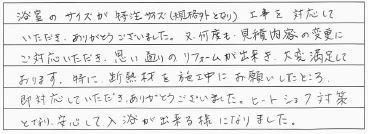 浴室のサイズが特注サイズ(規格外となり)工事を対応して
いただき、ありがとうございました。又、何度も見積内容の変更に
ご対応いただき、思い通りのリフォームが出来き、大変満足して
おります。特に、断熱材を施工中にお願いしたところ、
即対応していただき、ありがとうございました。ヒートショック対策
となり、安心して入浴が出来る様になりました。